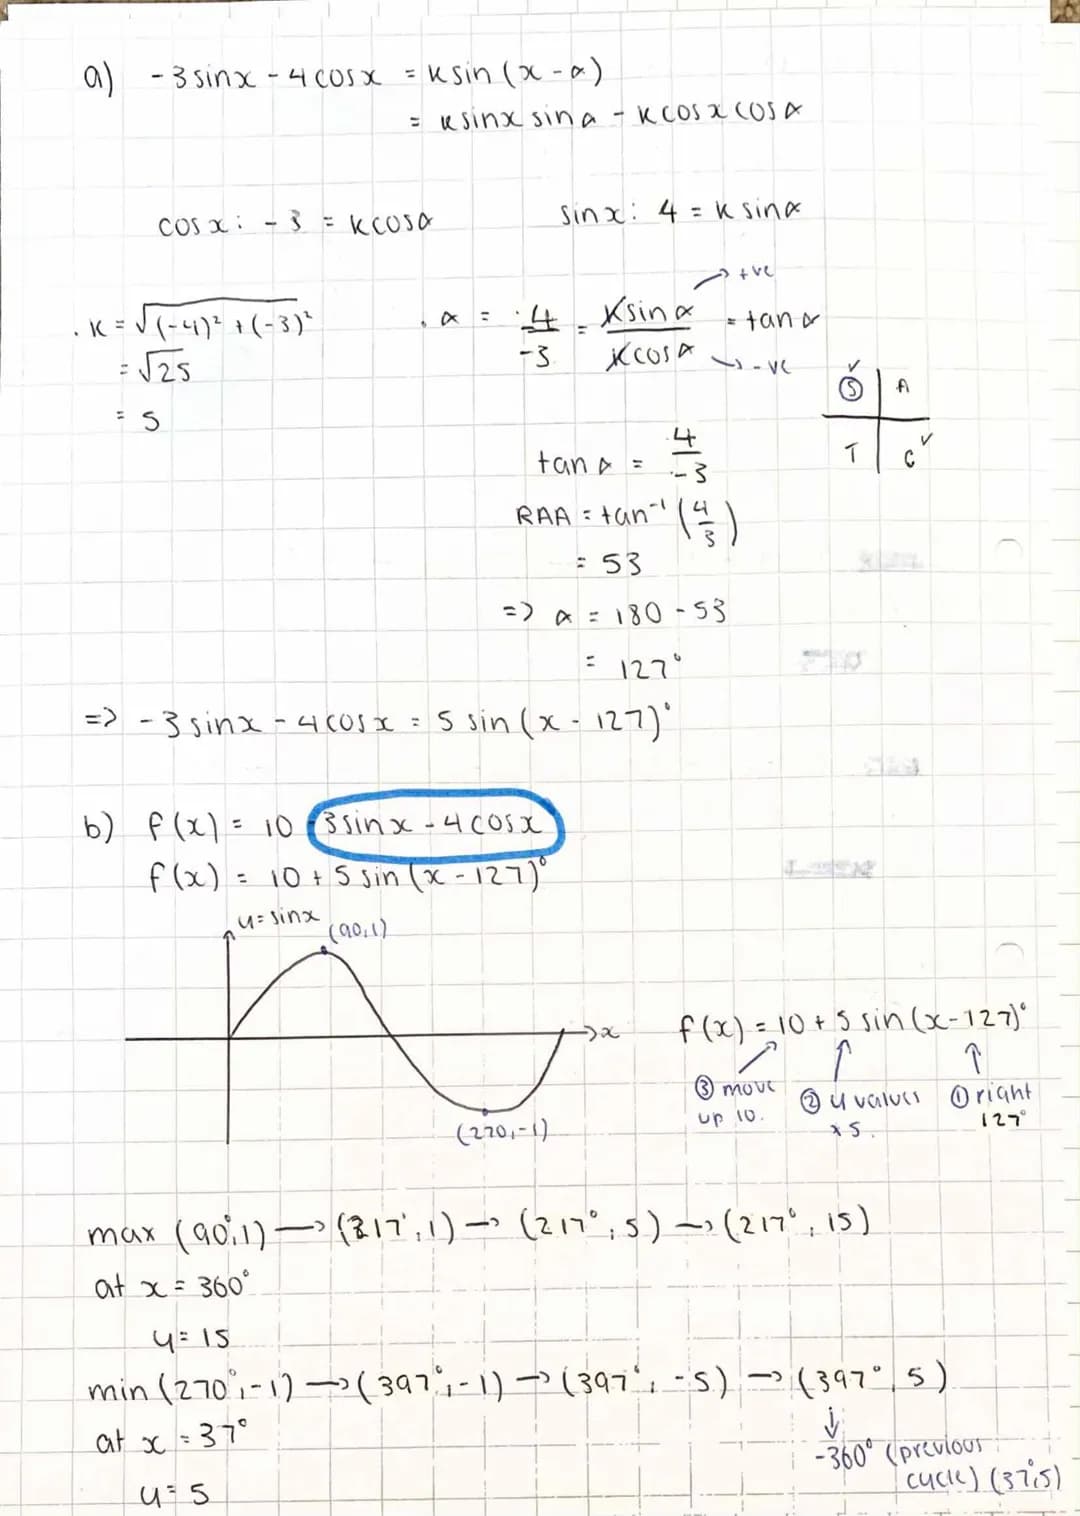 a) -3 sinx - 4 cosx = k sin (x - α)
= k sinx sin α - k cos x cos α
cos x: -3 = k cos α
sin x: 4 = k sin α
→ +ve
. k = √(-4)² + (-3)²
. α = 4/-3 = k sin α / k cos α = tan α
→ -ve
= √25
= 5
✓
S A
T C ✓
tan α = 4/-3
RAA = tan⁻¹ (4/3)
= 53
=> α = 180 - 53
= 127°
=> -3 sinx - 4 cos x = 5 sin (x - 127)°
b) f(x) = 10 -3 sinx - 4 cosx
f(x) = 10 + 5 sin (x - 127)°
y = sinx
(90,1)
→x
(270,-1)
f(x) = 10 + 5 sin (x - 127)°
③ move up 10.
② y values x 5.
① right 127°
max (90°,1) → (217°,1) → (217°, 5) → (217°, 15)
at x = 360°
y = 15
min (270°,-1) → (397°,-1) → (397°, -5) → (397°, 5)
at x = 37°
-360° (previous
cycle) (37°,5)
y = 5